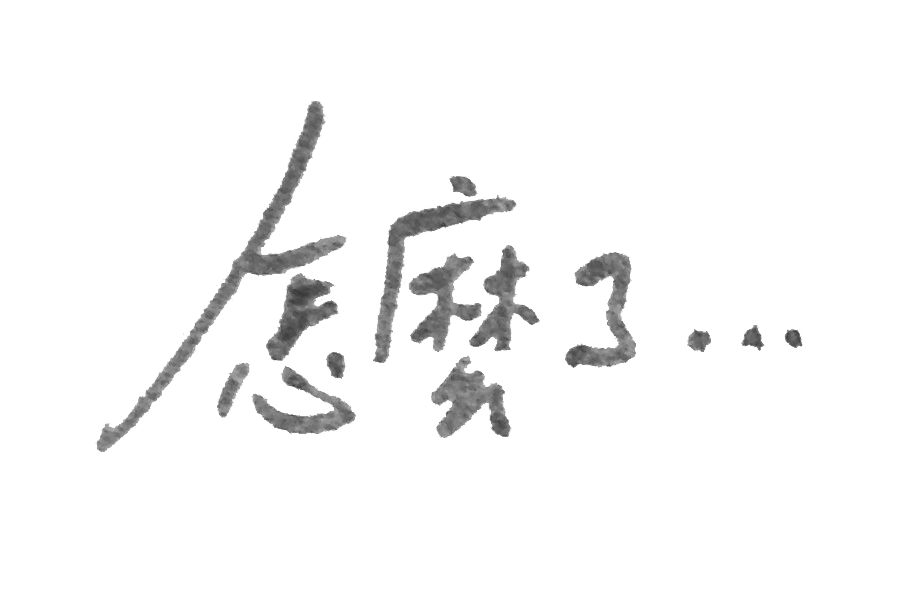 怎麼了...